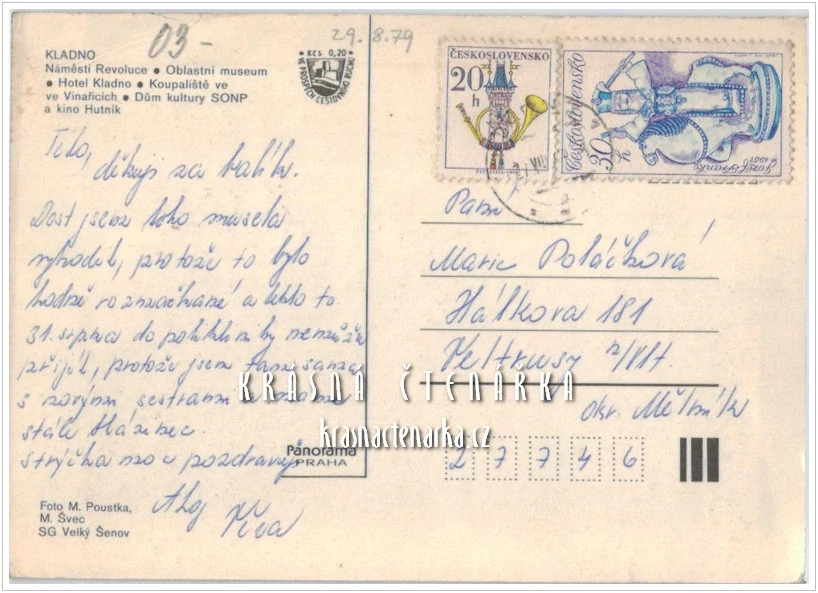 03-
29.8.79
KLADNO
Náměstí Revoluce • Oblastní museum
• Hotel Kladno • Koupaliště ve
ve Vinařicích • Dům kultury SONP
a kino Hutník
Kčs 0,20
VE PROSPĚCH CESTOVNÍHO RUCHU
ČESKOSLOVENSKO
20 h
Československo
30 h
Teto,
děkuji za balík.
Dost jsem toho musela
vyhodit, protože to bylo
hodně rozmačkané a
31. srpna do polikliniky nemůžu
přijít, protože jsem tam sama
s novými sestrami a máme
stále
strýčka moc pozdravuj
Ahoj
Panorama
PRAHA
Foto M. Poustka,
M. Švec
SG Velký Šenov
Paní
Marie Poláčková
Hálkova 181
Veltrusy n/Vlt.
okr. Mělník
27746
KRÁSNÁ ČTENÁŘKA
krasnactenarka.cz